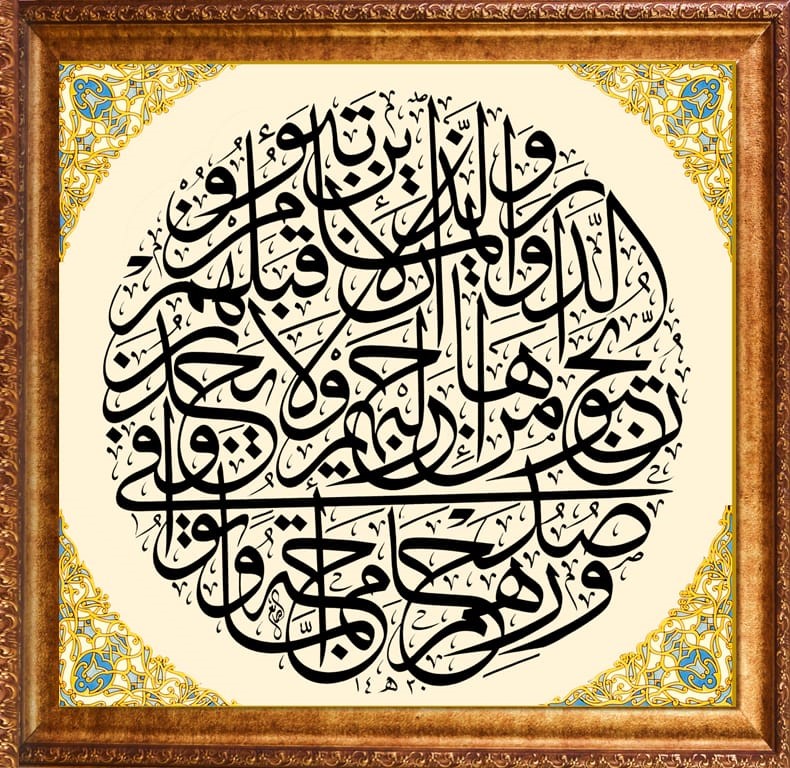 وَالَّذِينَ تَبَوَّءُو الدَّارَ وَالْإِيمَانَ مِن قَبْلِهِمْ
يُحِبُّونَ مَنْ هَاجَرَ إِلَيْهِمْ وَلَا يَجِدُونَ فِي
صُدُورِهِمْ حَاجَةً مِّمَّا أُوتُوا